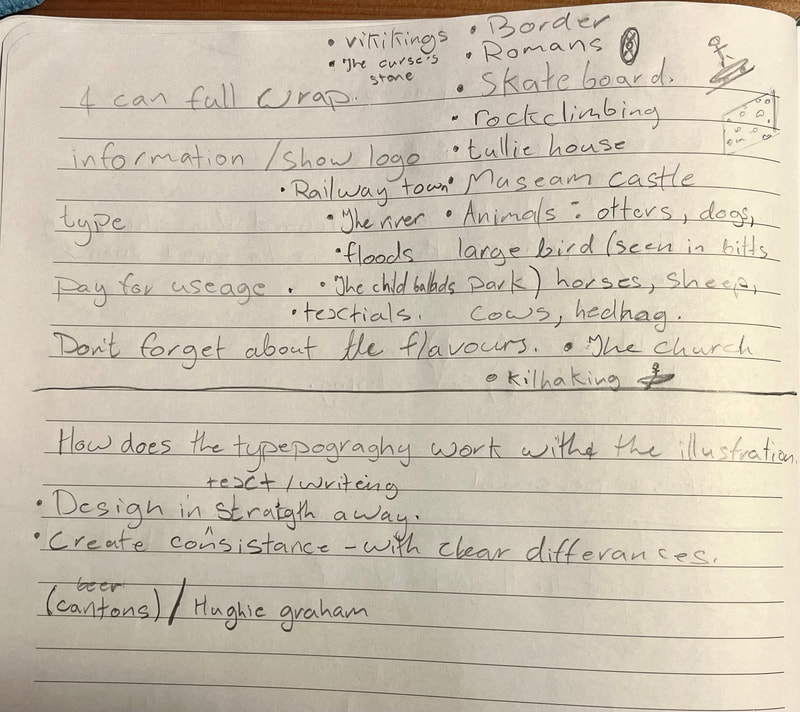 • vikikings • Border
• The curse's stone • Romans
• Skateboard.
4 can full wrap.
• rockclimbing
information / show logo • tullie house
• Railway town • Museam castle
type • The river • Animals : otters, dogs,
• floods large bird (seen in bitts
pay for useage . • The child ballads park) horses, sheep,
• texctials. cows, hedhag.
Don't forget about the flavours. • The church
• kilhaking
How does the typepograghy work with the illustration.
texct / writeing
• Design in stratgth away.
• Create consistance - with clear differances.
beer
(cantons) / Hughie graham